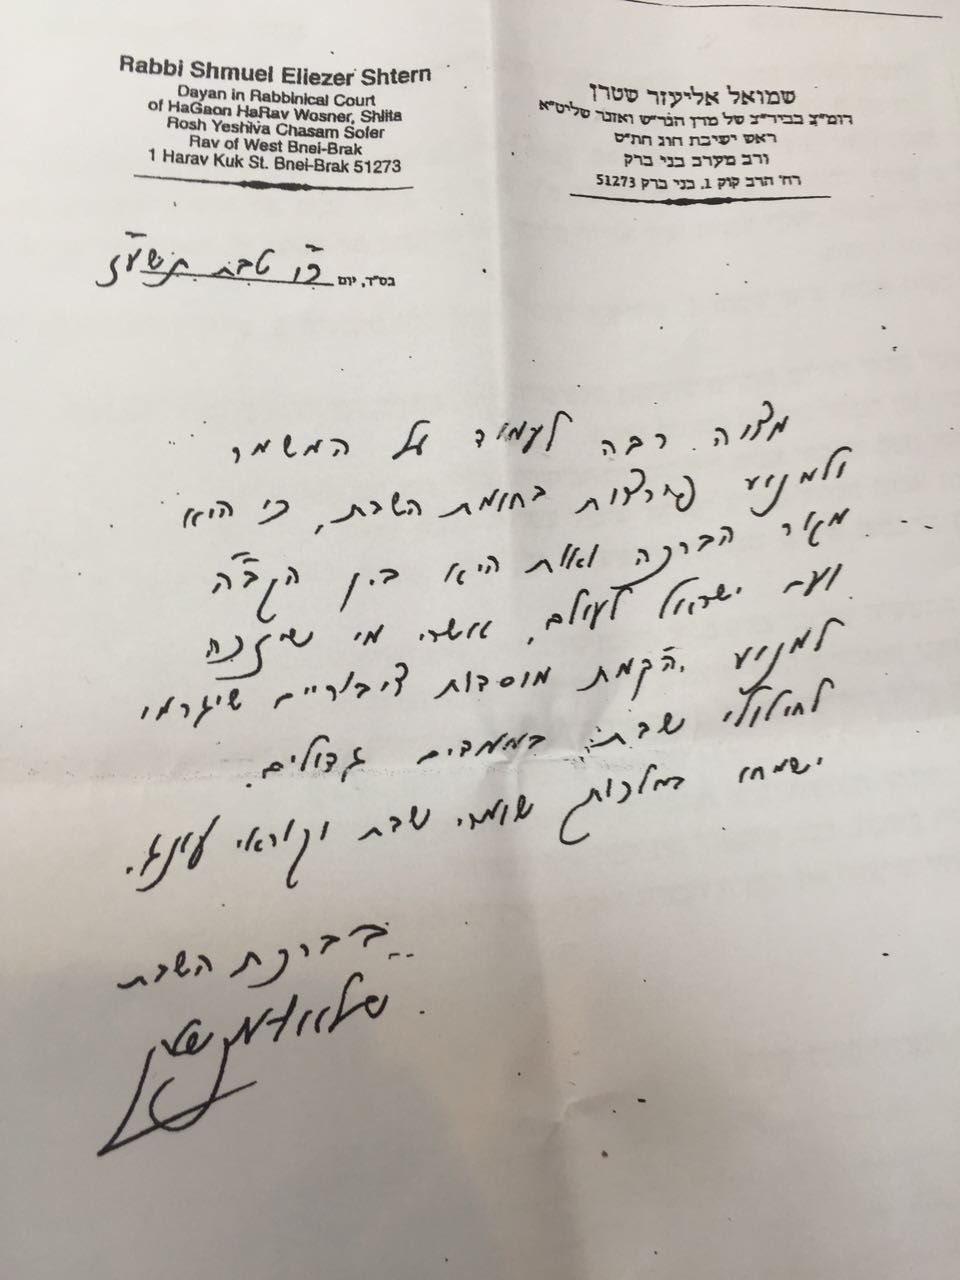 Rabbi Shmuel Eliezer Shtern
Dayan in Rabbinical Court
of HaGaon HaRav Wosner, Shlita
Rosh Yeshiva Chasam Sofer
Rav of West Bnei-Brak
1 Harav Kuk St. Bnei-Brak 51273
שמואל אליעזר שטרן
דומ"צ בביד"צ של מרן הגר"ש ואזנר שליט"א
ראש ישיבת חוג חת"ס
ורב מערב בני ברק
רח' הרב קוק 1, בני ברק 51273
בס"ד, יום כ"ו טבת תשע"ז
מצוה רבה לעמוד על המשמר
ולמנוע פרצות בחומת השבת, כי היא
מקור הברכה ואות היא בין הקב"ה
ועם ישראל לעולם, אשרי מי שיזכה
למנוע הקמת מוסדות ציבוריים שיגרמו
לחילולי שבת בממדים גדולים.
ישמחו במלכותך שומרי שבת וקוראי עונג.
בברכת השבת